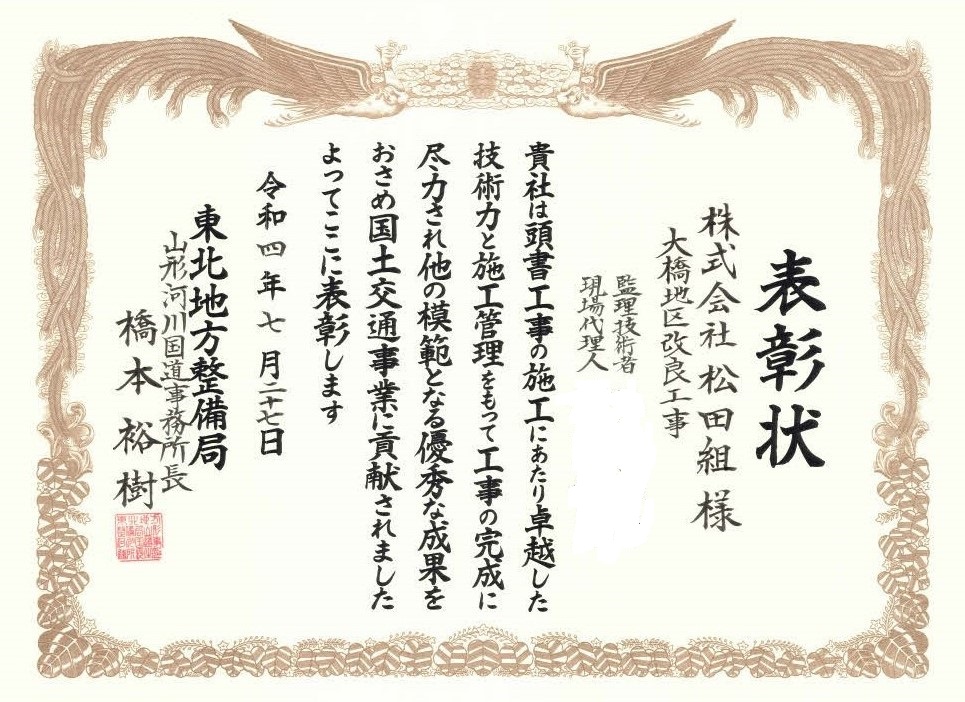 表彰状
株式会社 松田組 様
大橋地区改良工事
監理技術者
現場代理人
貴社は頭書工事の施工にあたり卓越した
技術力と施工管理をもって工事の完成に
尽力され他の模範となる優秀な成果を
おさめ国土交通事業に貢献されました
よってここに表彰します
令和四年七月二十七日
東北地方整備局
山形河川国道事務所長
橋本裕樹